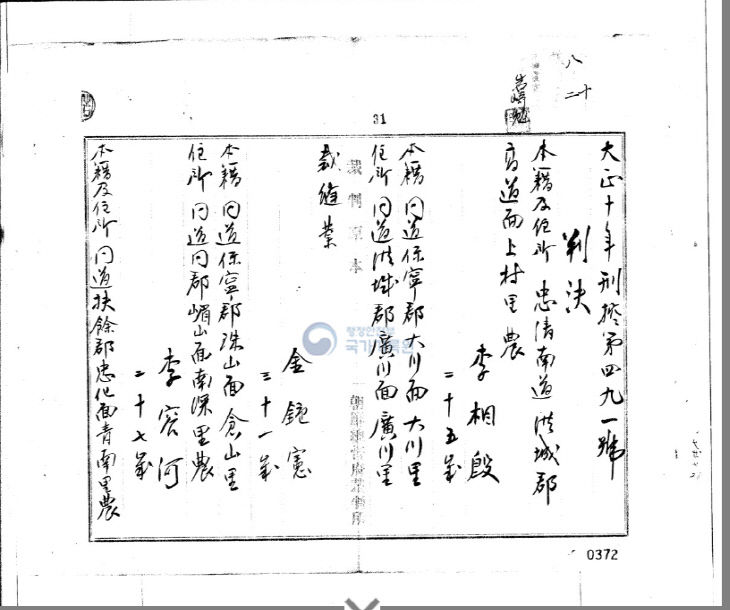 大正十年刑控第四九一號
判決
本籍及住所 忠清南道洪城郡
高道面上村里農
李相殷
二十五歲
本籍 同道保寧郡大川面大川里
住所 同道洪城郡廣川面廣川里
裁縫業
金鍾憲
三十一歲
本籍 同道保寧郡珠山面倉山里
住所 同道同郡嵋山面南深里農
李容河
二十七歲
本籍及住所 同道扶餘郡忠化面青南里農
裁判原本
행정안전부
국가기록원
31
0372
八十二